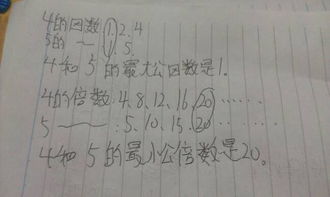 4的因数:1.2.4
5的 — 1.5
4和5的最大公因数是1.
4的倍数:4.8.12.16.20……
5 —— :5.10.15.20……
4和5的最小公倍数是20。